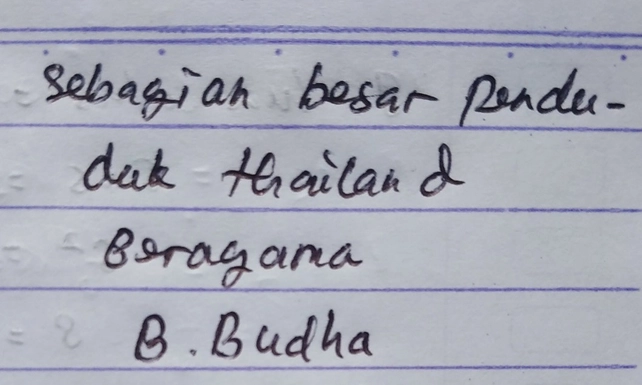 Sebagian besar pendu-
duk thailand
Beragama
B. Budha